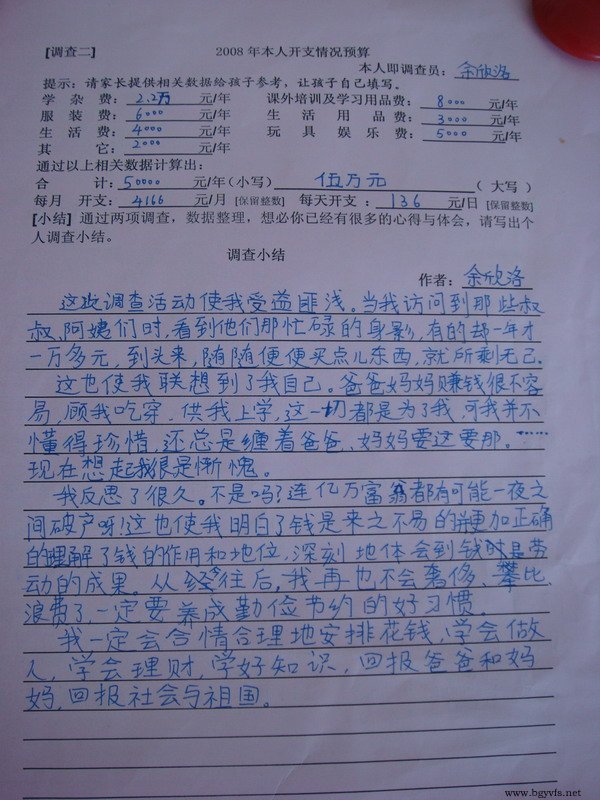 [调查二] 2008年本人开支情况预算
本人即调查员：余欣洛
提示：请家长提供相关数据给孩子参考，让孩子自己填写。
学杂费：2.2万元/年 课外培训及学习用品费：8000元/年
服装费：6000元/年 生活用品费：3000元/年
生活费：4000元/年 玩具娱乐费：5000元/年
其它：2000元/年
通过以上相关数据计算出：
合计：50000元/年(小写) 伍万元(大写)
每月开支：4166元/月 [保留整数] 每天开支：136元/日 [保留整数]
[小结] 通过两项调查，数据整理，想必你已经有很多的心得与体会，请写出个
人调查小结。
调查小结
作者：余欣洛
这次调查活动使我受益匪浅。当我访问到那些叔
叔、阿姨们时，看到他们那忙碌的身影，有的却一年才
一万多元，到头来，随随便便买点儿东西，就所剩无己.
这也使我联想到了我自己。爸爸妈妈赚钱很不容
易，顾我吃穿，供我上学，这一切都是为了我，可我并不
懂得珍惜，还总是缠着爸爸、妈妈要这要那。……
现在想起我很是惭愧。
我反思了很久。不是吗？连亿万富翁都有可能一夜之
间破产呀！这也使我明白了钱是来之不易的并更加正确
的理解了钱的作用和地位，深刻地体会到钱是劳
动的成果。从经往后，我再也不会奢侈、攀比、
浪费了，一定要养成勤俭节约的好习惯。
我一定会合情合理地安排花钱、学会做
人，学会理财，学好知识，回报爸爸和妈
妈，回报社会与祖国。
www.bgyvfs.net